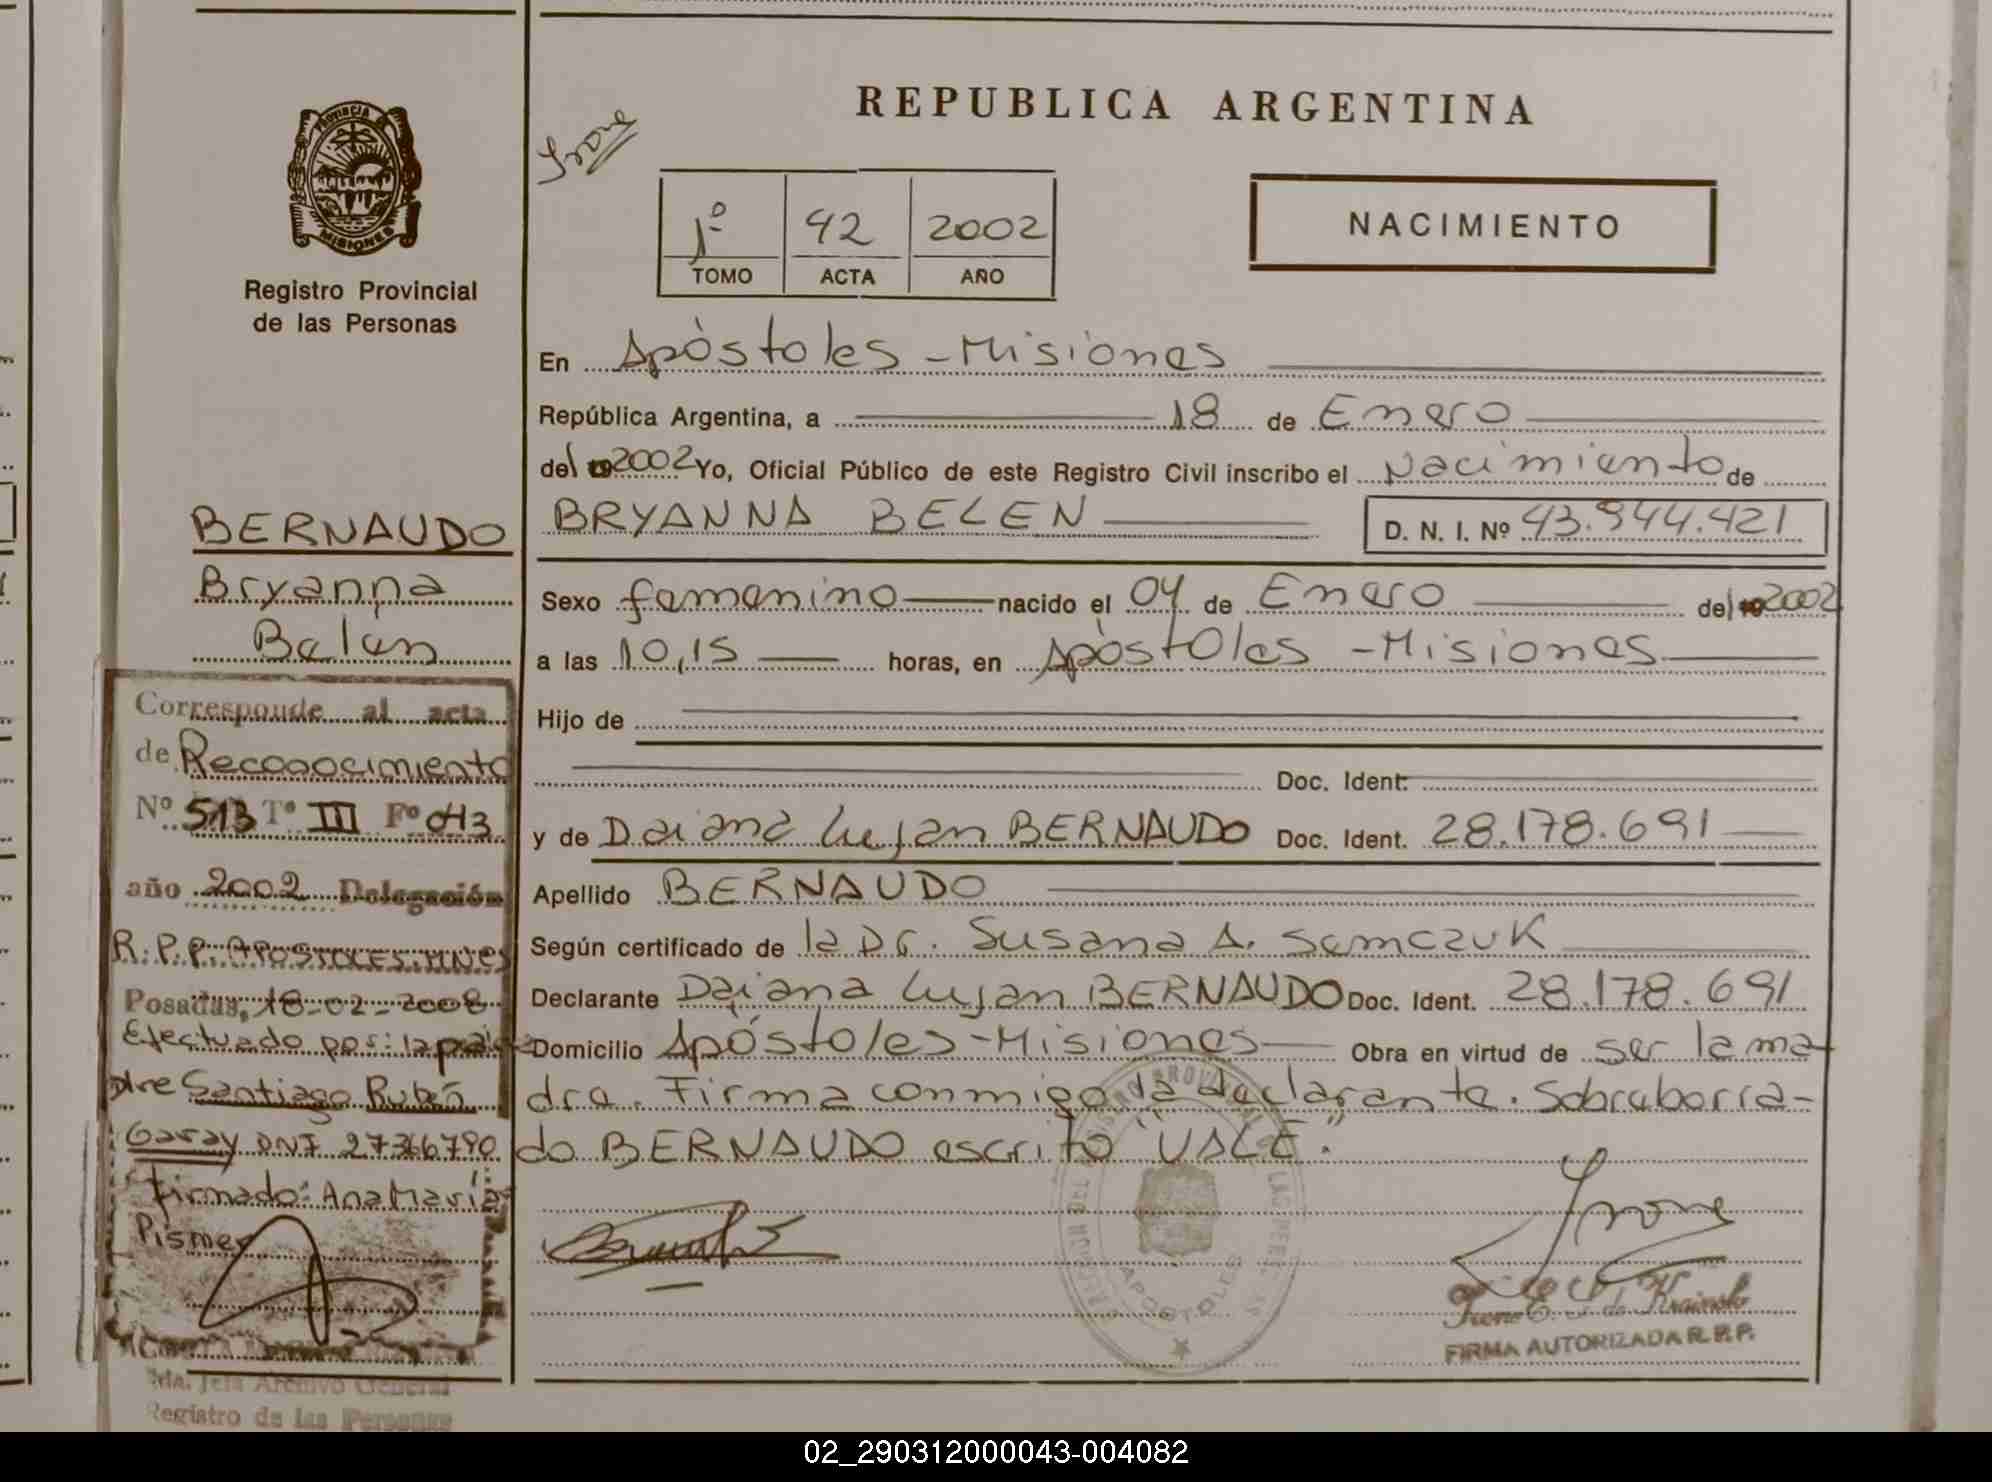 REPUBLICA ARGENTINA
Irone
PROVINCIA DE
MISIONES
Registro Provincial
de las Personas
1º 42 2002
TOMO ACTA AÑO
NACIMIENTO
En Apòstoles - Misiones
República Argentina, a 18 de Enero
del 2002 Yo, Oficial Público de este Registro Civil inscribo el Nacimiento de
BRYANNA BELEN D. N. I. Nº 43.944.421
Sexo femenino nacido el 04 de Enero del 2002
a las 10,15 horas, en Apòstoles - Misiones
Hijo de
Doc. Ident.
y de Daiana Lujan BERNAUDO Doc. Ident. 28.178.691
Apellido BERNAUDO
Según certificado de la Dr. Susana A. Semczuk
Declarante Daiana Lujan BERNAUDO Doc. Ident. 28.178.691
Domicilio Apóstoles - Misiones Obra en virtud de ser la ma-
dre. Firma conmigo la declarante. Sobreborra-
do BERNAUDO escrito "VALE".
BERNAUDO
Bryanna
Belen
Corresponde al acta
de Reconocimiento
Nº 513 Tº III Fº 043
año 2002 Delegación
R.P.P. APOSTOLES. MNES
Posadas, 18-02-2008
Efectuado por: la pa
dre Santiago Rubén
Garay DNI 27366790
Firmado: Ana María
Pismer
Jefa Archivo General
Registro de las Personas
APOSTOLES
FIRMA AUTORIZADA R.P.P.
02_290312000043-004082